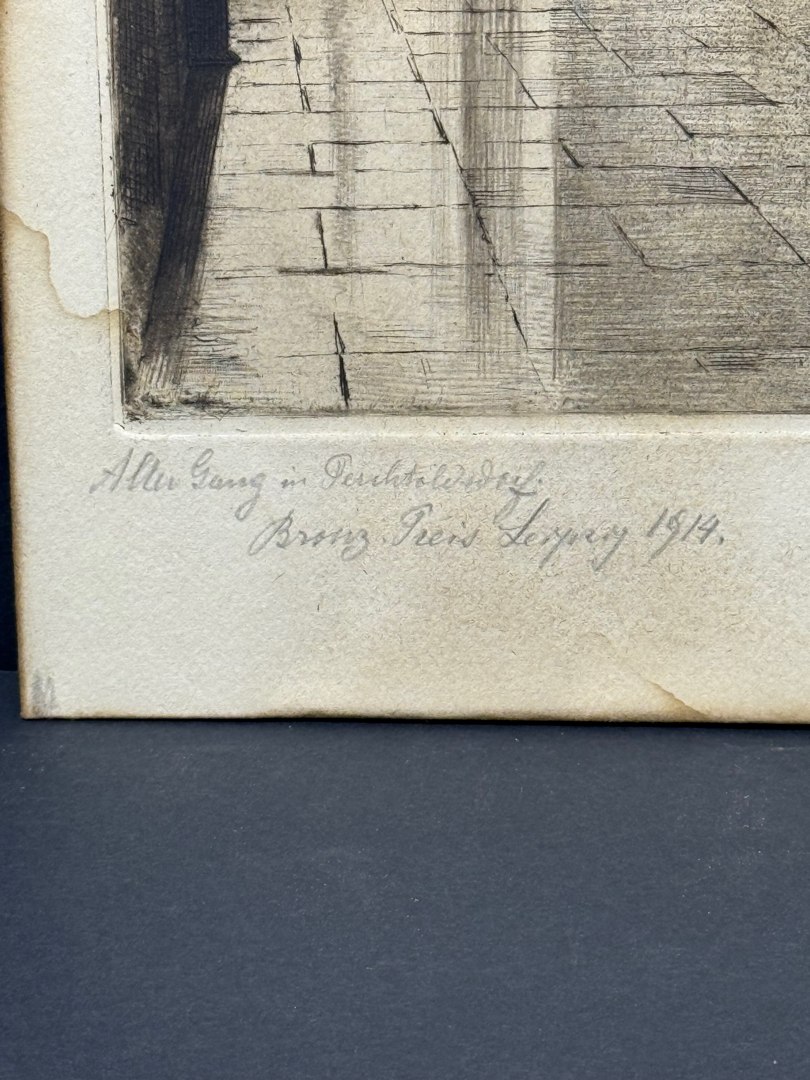 Alter Gang in Perchtoldsdorf.
Bronz. Preis Leipzig 1914.